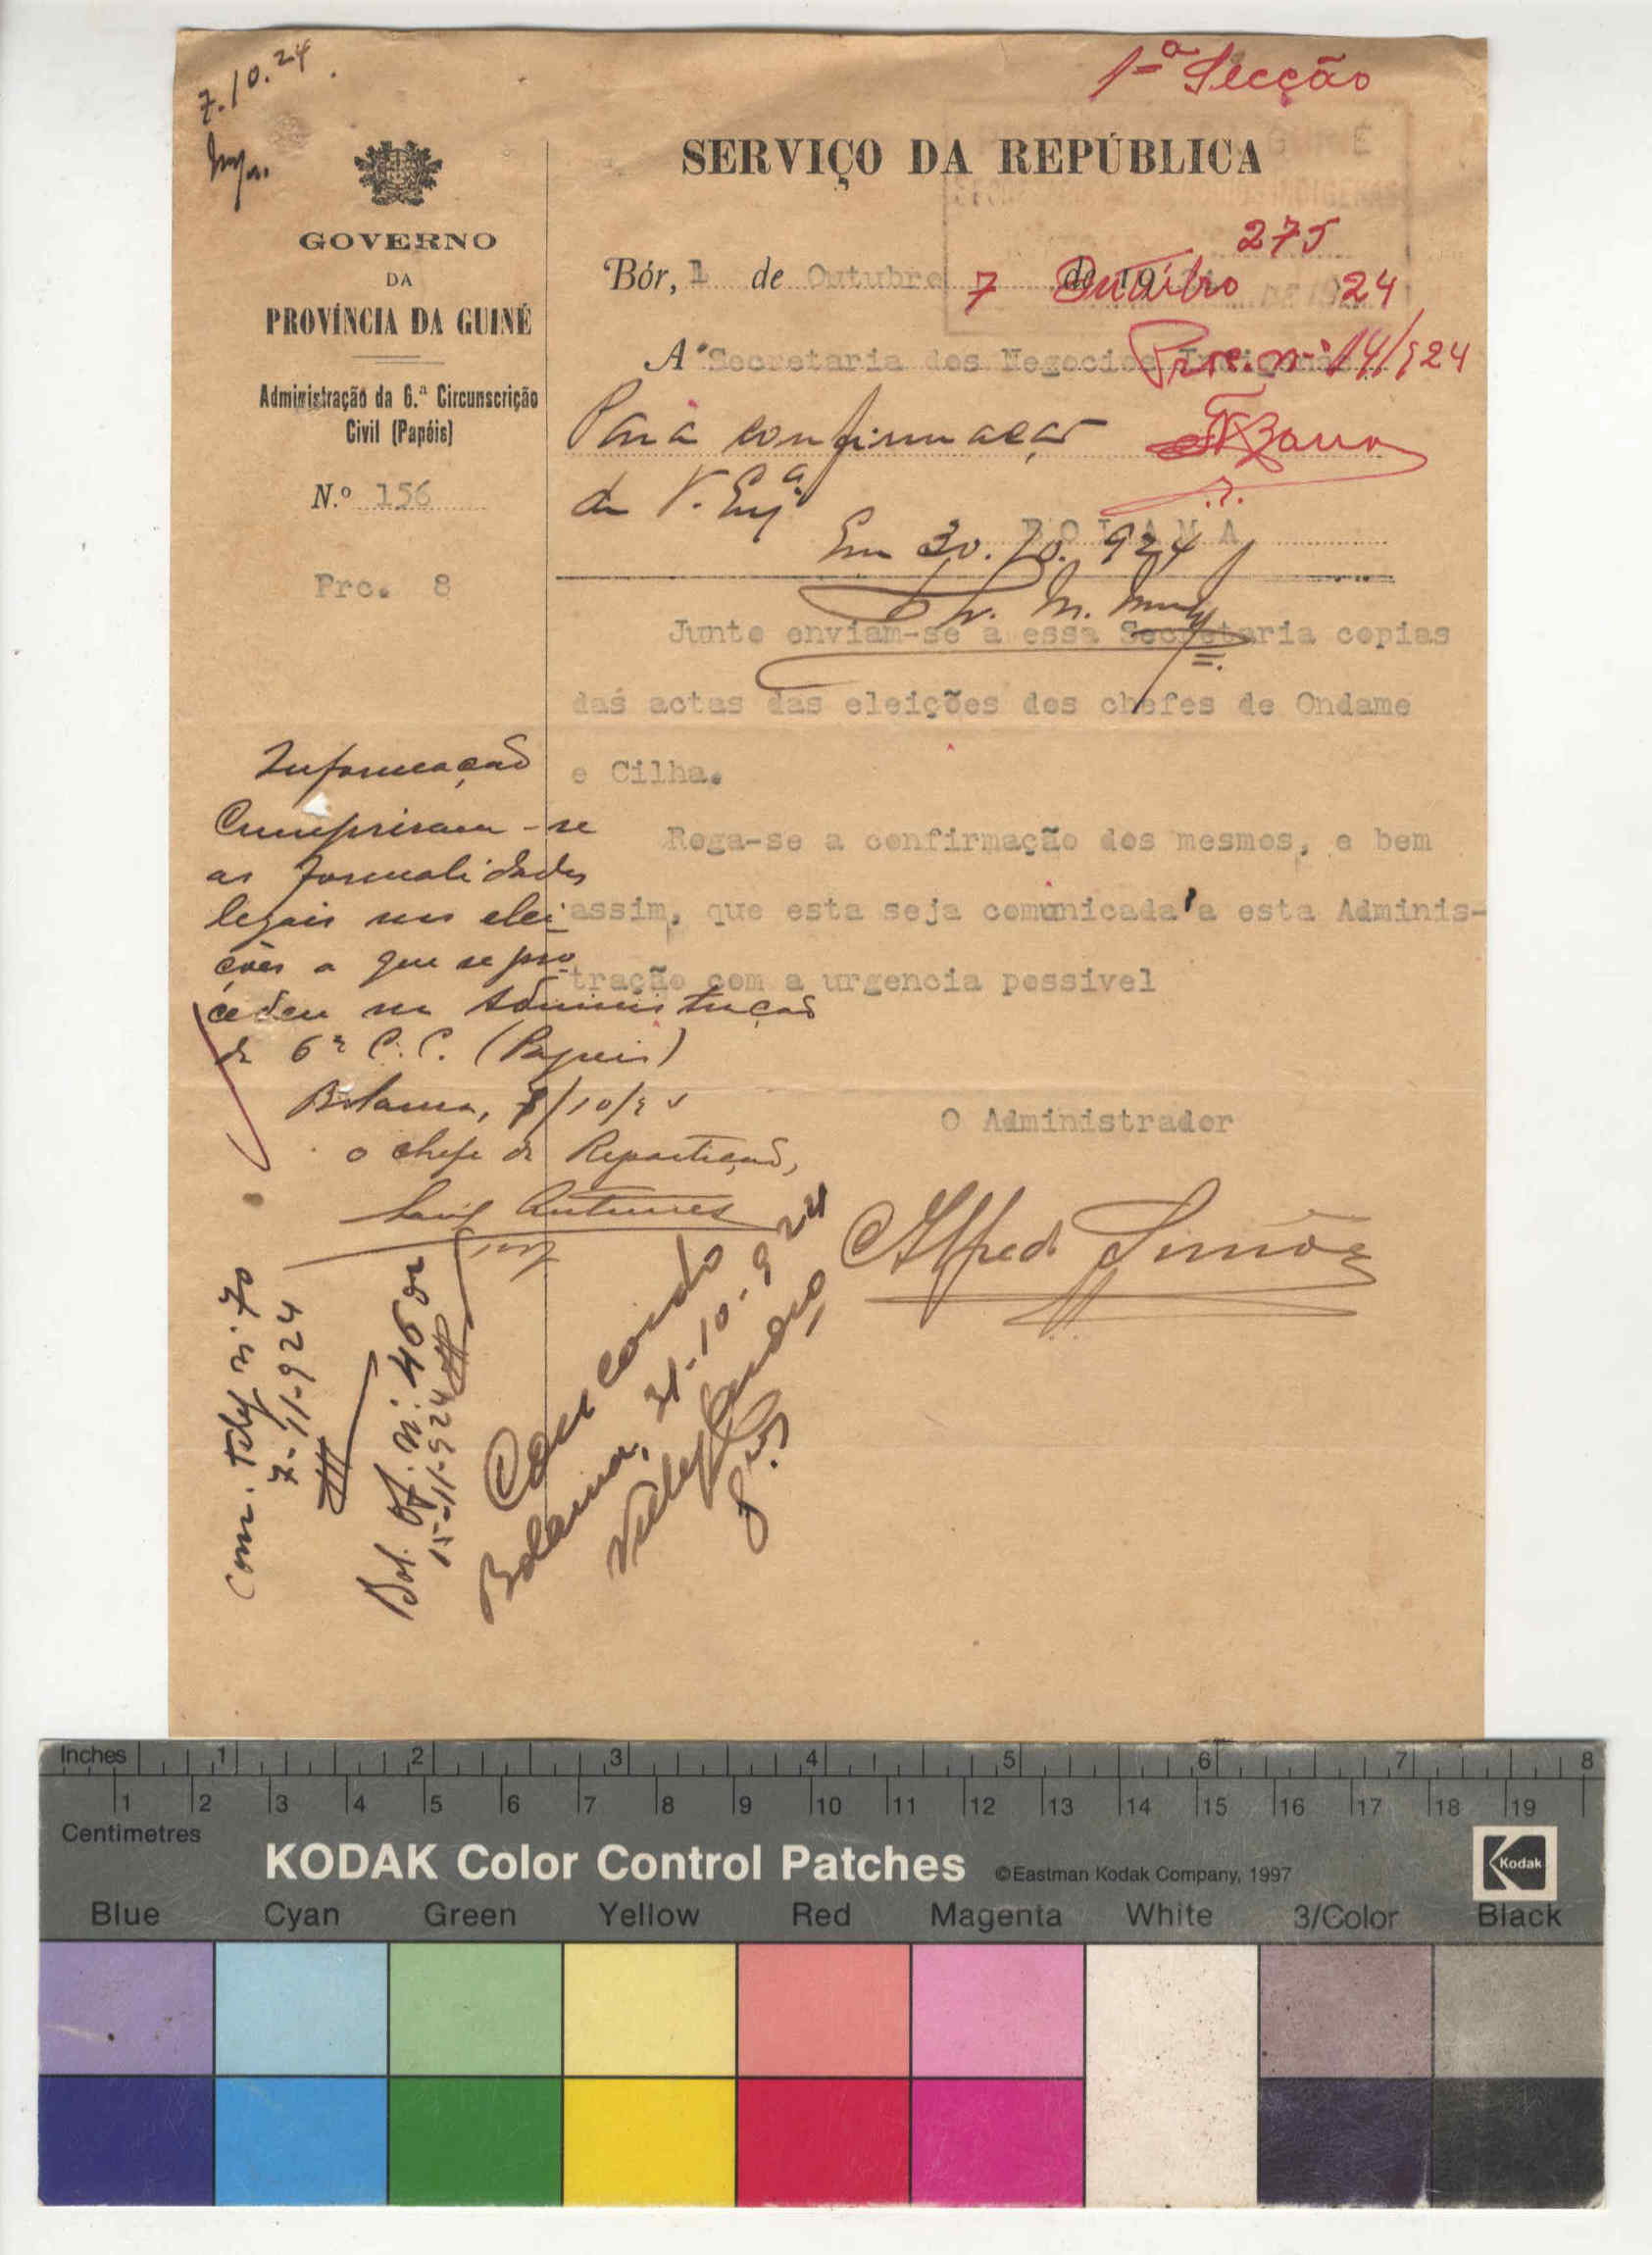 7.10.24
1ª Secção
SERVIÇO DA REPÚBLICA
GUINÉ
INDIGENAS
GOVERNO
DA
PROVÍNCIA DA GUINÉ
Administração da 6.ª Circunscrição
Civil (Papéis)
N.º 156
Pro. 8
275
Bór, 1 de Outubro de 19
7 Outubro 24
A Secretaria dos Negocios
Proc. nº 14/924
Para confirmação
de V. Exª
BOLAMA
Em 30.10.924
Junto enviam-se a essa Secretaria copias
das actas das eleições dos chefes de Ondame
e Cilha.
Roga-se a confirmação dos mesmos, e bem
assim, que esta seja comunicada a esta Adminis-
tração com a urgencia possivel
O Administrador
Alfredo Simões
Informação
Cumpriram-se
as formalidades
legais nas elei-
ções a que se pro-
cedeu na Administração
da 6ª C.C. (Papeis)
Bolama, 8/10/24
o chefe da Repartição,
Antunes
Com. Telg nº 70
7-11-924
Bol. Of. nº 46 de
15-11-924
Concordo
Bolama, 31-10-924